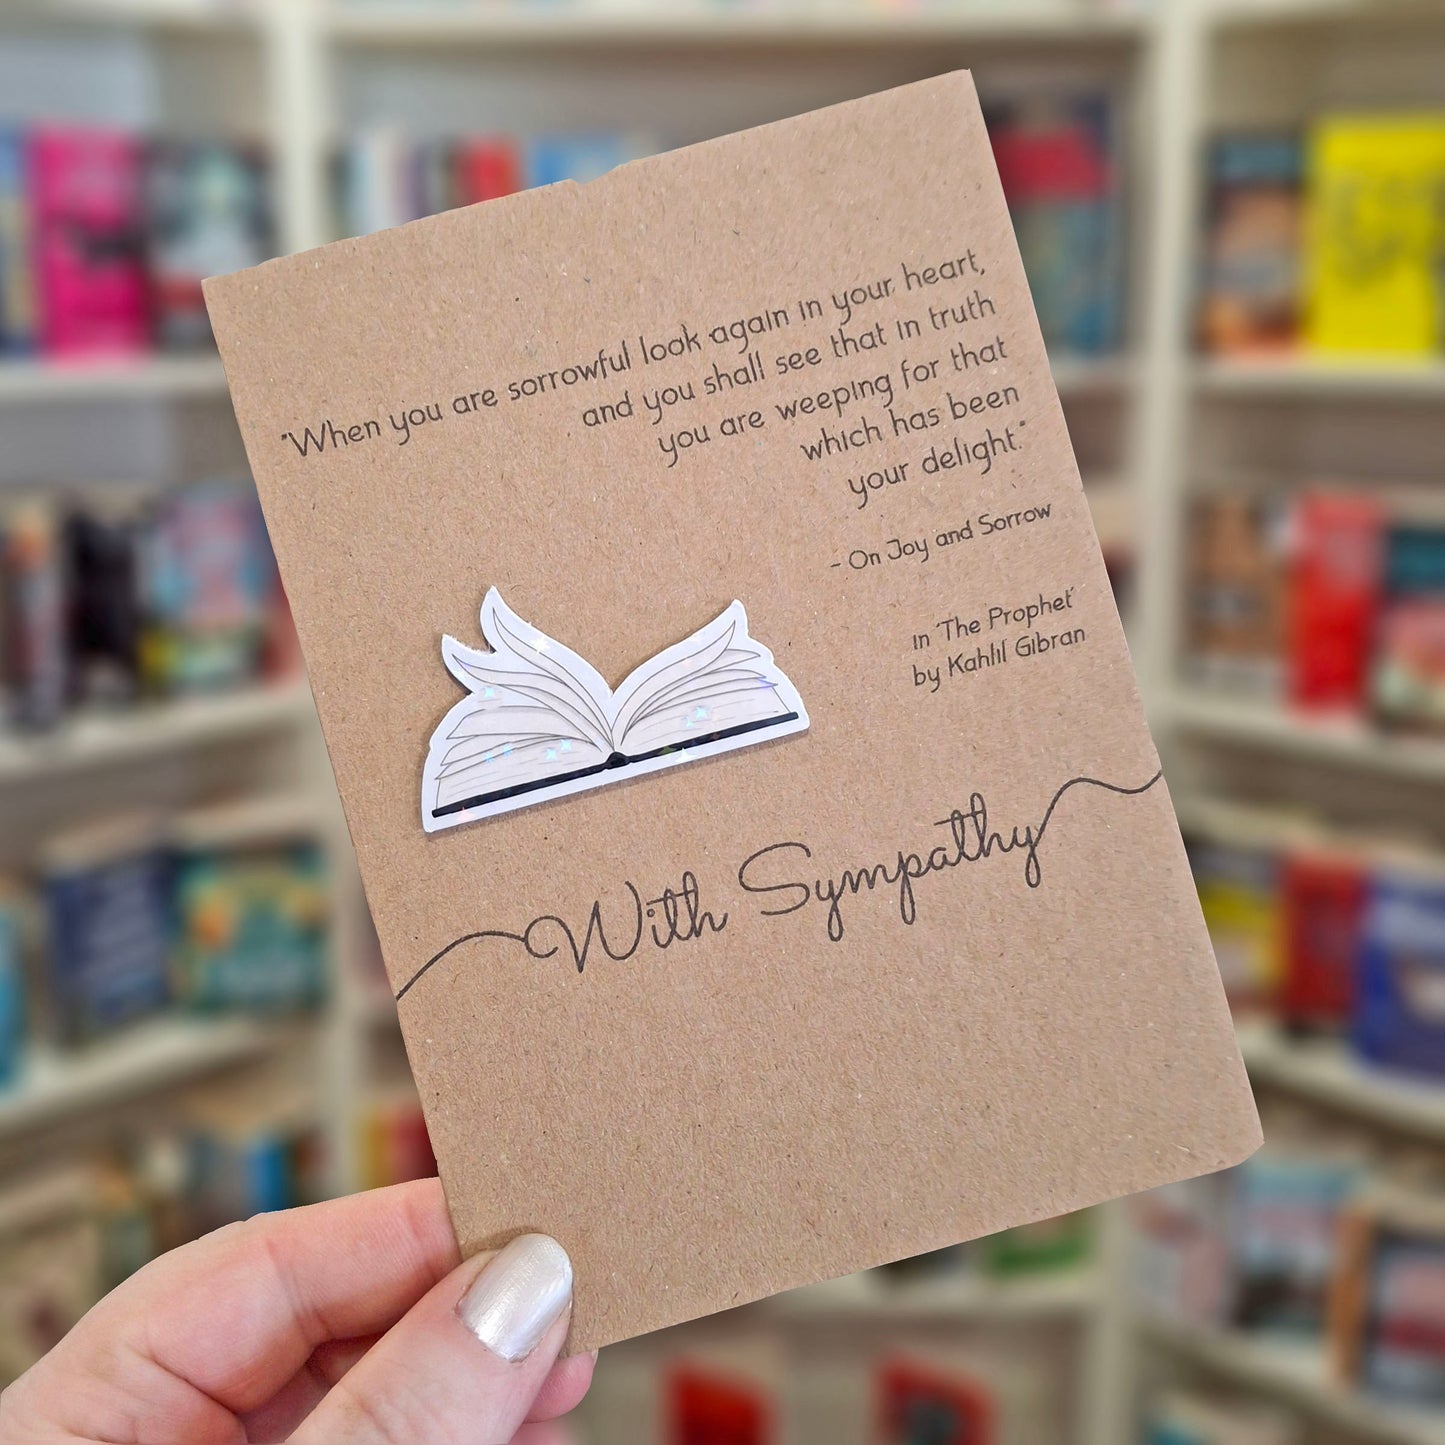 "When you are sorrowful look again in your heart,
and you shall see that in truth
you are weeping for that
which has been
your delight."
- On Joy and Sorrow
in 'The Prophet'
by Kahlil Gibran
With Sympathy